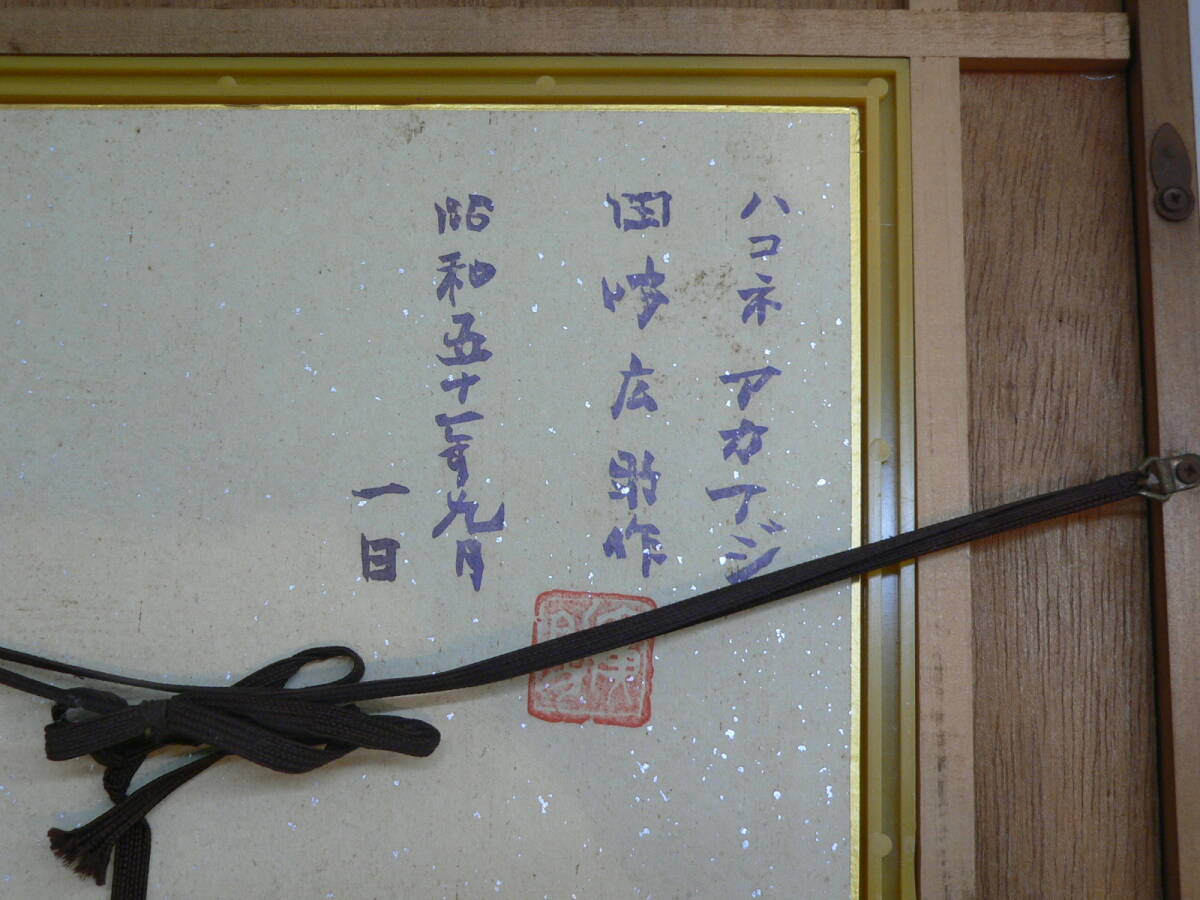 ハコネ アカフジ
田崎広助作
昭和五十一年九月
一日